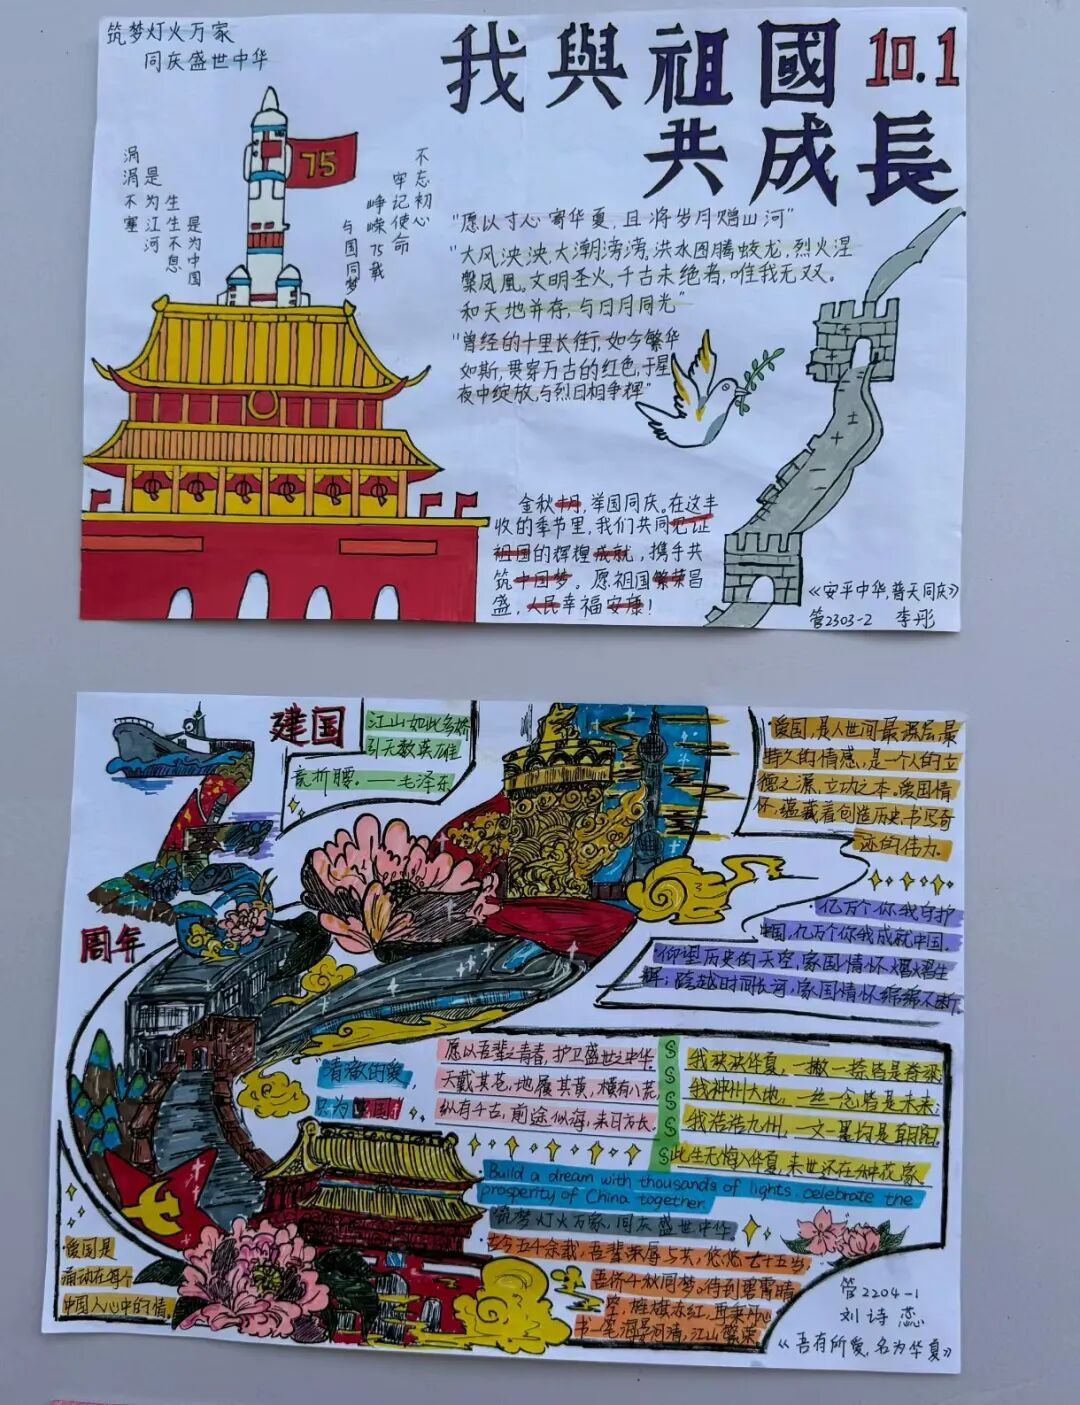 筑梦灯火万家
同庆盛世中华
我與祖國
10.1
共成長
涓涓不塞
是为江河
生生不息
是为中国
75
不忘初心
牢记使命
峥嵘75载
与国同梦
"愿以寸心寄华夏,且将岁月赠山河"
"大风泱泱,大潮滂滂,洪水图腾蛟龙,烈火涅
槃凤凰,文明圣火,千古未绝者,唯我无双。
和天地并存,与日月同光"
"曾经的十里长街,如今繁华
如斯,贯穿万古的红色,于星
夜中绽放,与烈日相争辉"
金秋十月,举国同庆。在这丰
收的季节里,我们共同见证
祖国的辉煌成就,携手共
筑中国梦。愿祖国繁荣昌
盛,人民幸福安康!
《安平中华,普天同庆》
管2303-2 李彤
建国
周年
江山如此多娇
引无数英雄
竞折腰。——毛泽东
爱国,是人世间最深层最
持久的情感,是一个人的立
德之源,立功之本。爱国情
怀,蕴藏着创造历史,书写奇
迹的伟力.
亿万个你我守护
中国,亿万个你我成就中国.
仰望历史的天空,家国情怀熠熠生
辉;跨越时间长河,家国情怀绵绵不断.
"清澈的爱,
只为中国"
愿以吾辈之青春,护卫盛世之中华.
天戴其苍,地履其黄,横有八荒,
纵有千古,前途似海,来日方长.
我泱泱华夏,一撇一捺皆是脊梁
我神州大地,一丝一念皆是未来;
我浩浩九州,一文一墨均是
此生无悔入华夏,来世还在种花家
Build a dream with thousands of lights. celebrate the
prosperity of China together.
筑梦灯火万家,同庆盛世中华.
去今五千余载,吾辈荣辱与共,悠悠七十五岁,
吾侪千秋同梦。待到碧霄晴
空,旌旗赤红,再秉丹心
书一笔海晏河清,江山繁荣.
爱国是
涌动在每个
中国人心中的
管2204-1
刘诗蕊
《吾有所爱,名为华夏》